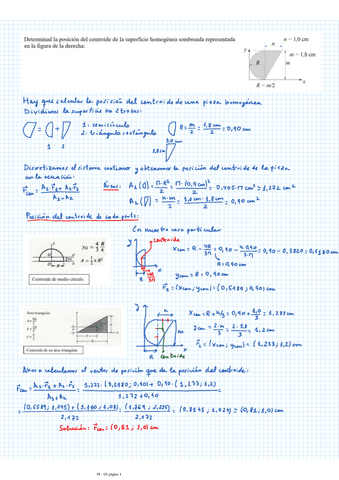 Determinad la posición del centroide de la superficie homogénea sombreada representada
en la figura de la derecha:
n = 1,0 cm
m = 1,8 cm
y
n
R
m
x
R = m/2
Hay que calcular la posición del centroide de una pieza homogénea
Dividimos la superficie en 2 trozos:
= +
1 2
1: semicírculo
2: triángulo rectángulo
R = m/2 = 1,8 cm/2 = 0,90 cm
1,0 cm
1,8 cm
Discretizamos el sistema continuo y obtenemos la posición del centroide de la pieza
con la ecuación:
r_cm = (A₁·r₁ + A₂·r₂)/(A₁+A₂)
Áreas:
A₁ = π·R²/2 = π·(0,9 cm)²/2 = 0,405·π cm² = 1,272 cm²
A₂ = n·m/2 = 1,0 cm · 1,8 cm/2 = 0,90 cm²
Posición del centroide de cada parte:
En nuestro caso particular
y_G = 4/3 R/π
A = 1/2 π R²
Centroide de medio círculo.
centroide
4R/3π
R
x_cm = R − 4R/3π = 0,90 − 4·0,90/3·π = 0,90 − 0,3820 = 0,5180 cm
R = 0,90 cm
y_cm = R = 0,90 cm
r₁ = (x_cm; y_cm) = (0,5180; 0,90) cm
Área triangular
Centroide de un área triangular.
n
m
R
centroide
x_cm = R + n/3 = 0,90 + 1,0/3 = 1,233 cm
y_cm = 2·m/3 = 2·1,8/3 = 1,2 cm
r₂ = (x_cm; y_cm) = (1,233; 1,2) cm
Ahora calculamos el vector de posición que da la posición del centroide:
r_cm = (A₁·r₁ + A₂·r₂)/(A₁+A₂) = (1,272·(0,5180; 0,90) + 0,90·(1,233; 1,2))/(1,272 + 0,90) =
= ((0,6589; 1,145) + (1,110; 1,08))/2,172 = (1,769; 2,225)/2,172 = (0,8145; 1,024) ≈ (0,81; 1,0) cm
Solución: r_cm = (0,81; 1,0) cm